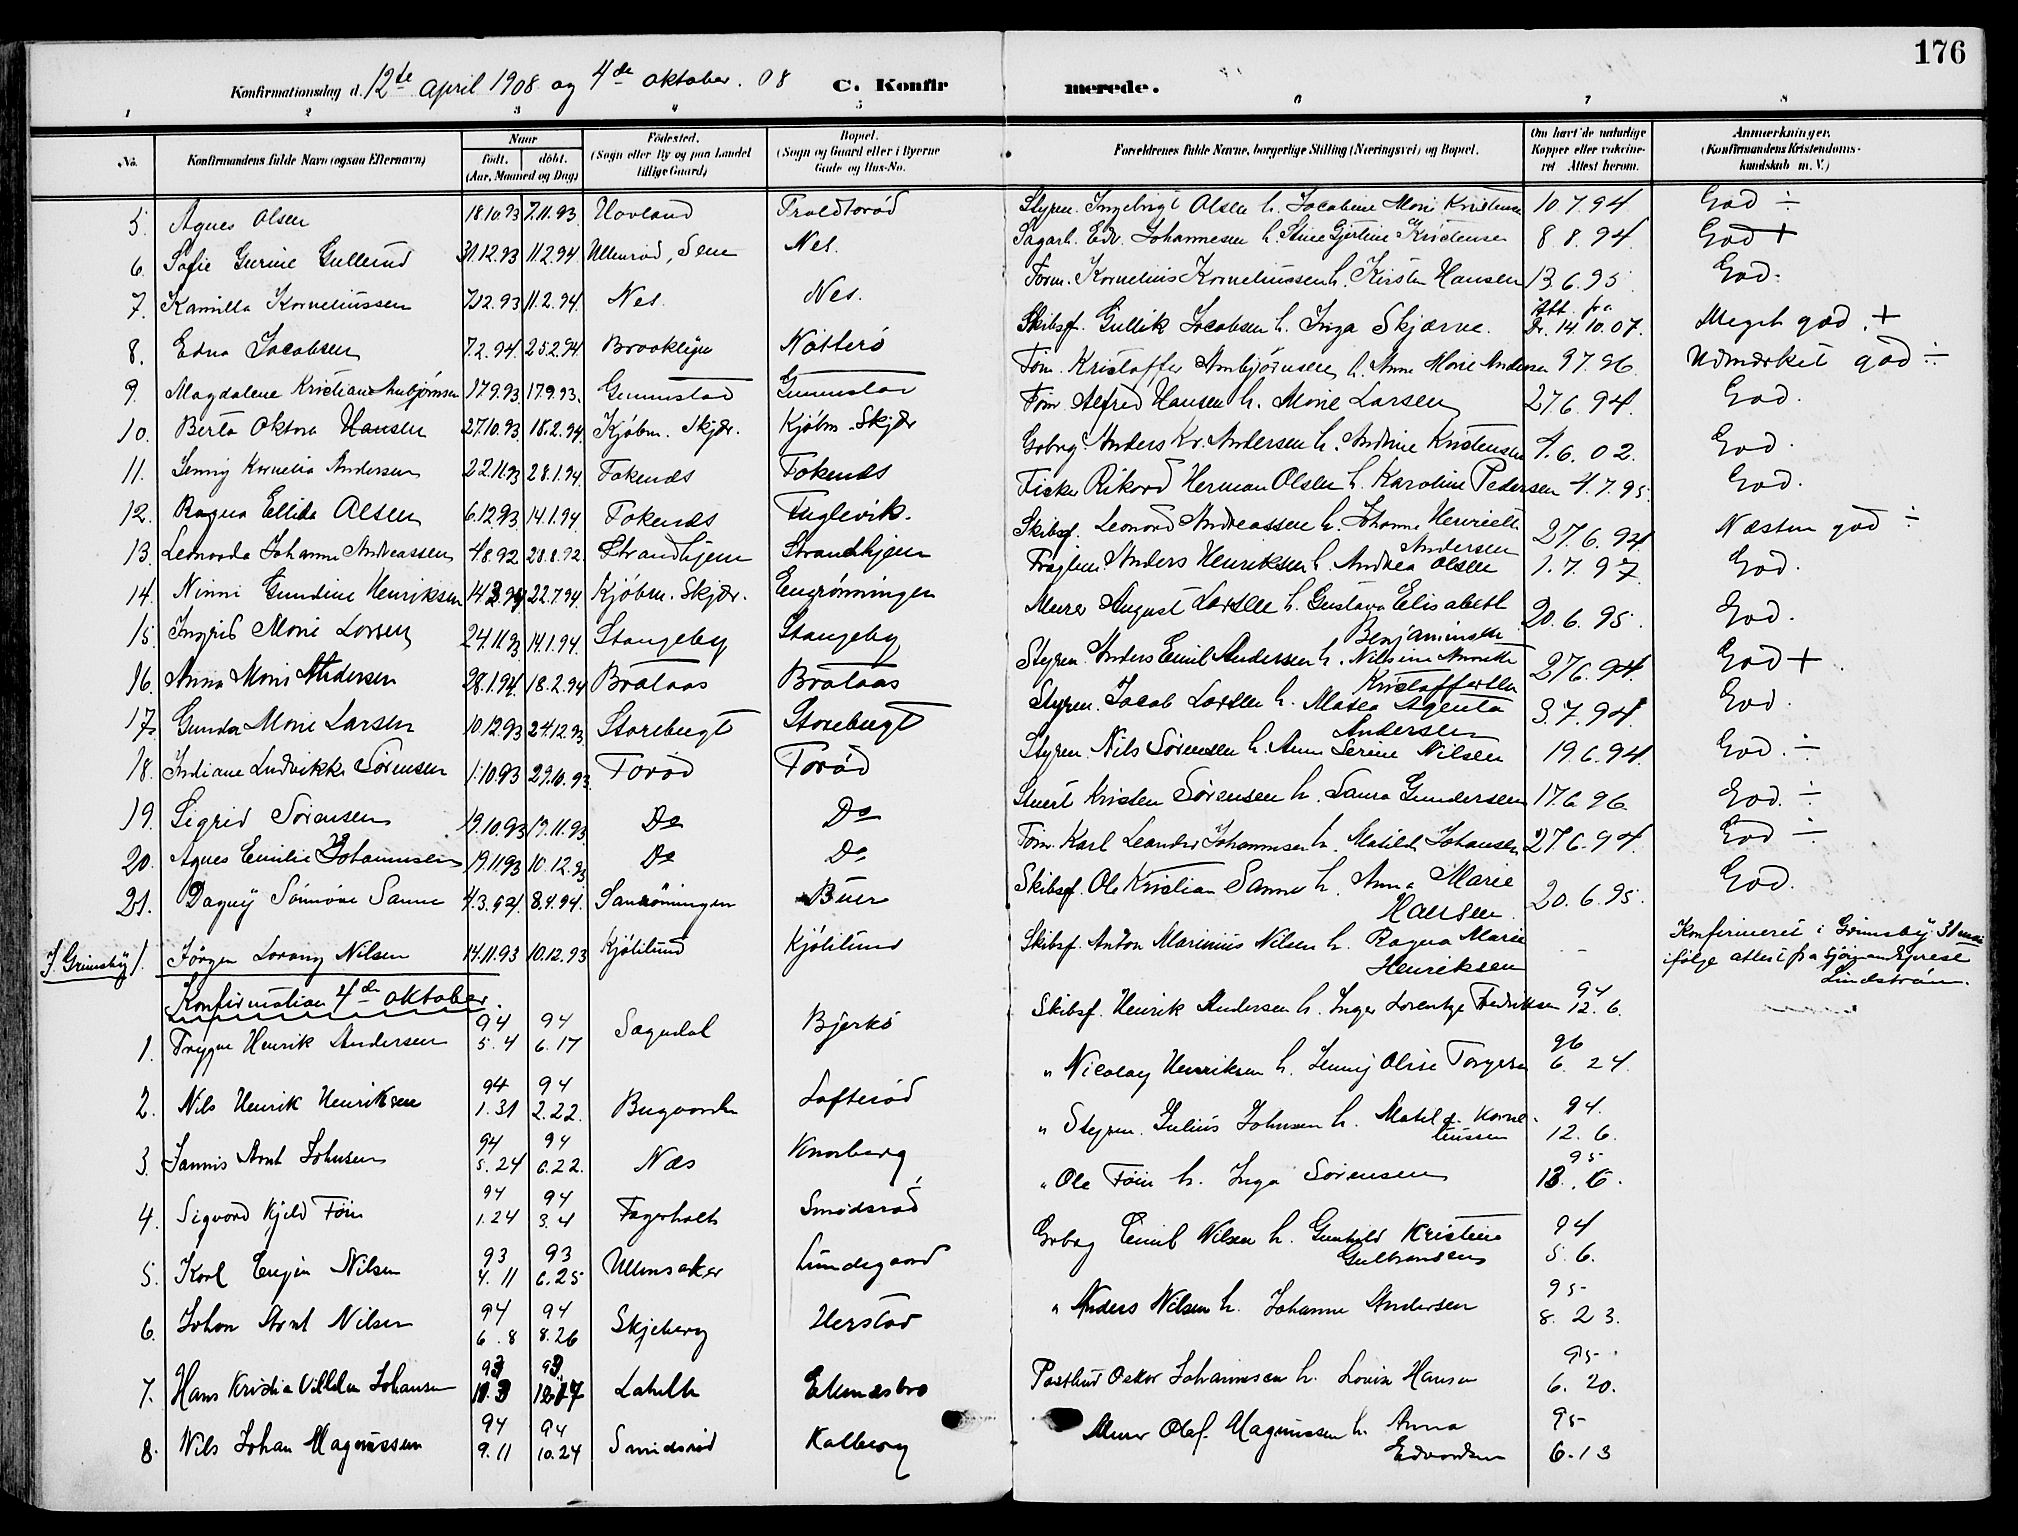 176
Konfirmationsdag d. 12te april 1908 og 4de oktober. 08 C. Konfirmerede.
1 2 3 4 5 6 7 8
No. Konfirmandens fulde Navn (ogsaa Efternavn) Naar født. døbt. (Aar, Maaned og Dag) Fødested. (Sogn eller By og paa Landet tillige Gaard) Bopæl. (Sogn og Gaard eller i Byerne Gade og Hus-No. Forældrenes fulde Navne, borgerlige Stilling (Næringsvei) og Bopæl. Om havt de naturlige Kopper eller vaksineret Attest herom. Anmærkninger. (Konfirmandens Kristendomskundskab m. V.)
5. Agnes Olsen 18.10.93 7.11.93 Hovland Styrm. Ingebrigt Olsen h. Jacobine Marie Kristensen 10.7.94 God ÷
6. Sofie Gurine Gullerud 31.12.93 11.2.94 Ullerød, Sem Nes. Sagarb. Edv. Johannesen h. Stine Gjertine Kristensen 8.8.94 God +
7. Kamilla Korneliussen 7.12.93 11.2.94 Nes. Nes. Tørm. Kornelius Korneliussen h. Kirsten Hansen 13.6.95 God.
8. Edna Jacobsen 7.2.94 25.2.94 Brooklyn Nøtterø Skibsf. Gullik Jacobsen h. Inga Skjærve. Att. fra Dr. 14.10.07. Meget god. +
9. Magdalene Kristiane Anbjørnsen 17.9.93 17.9.93. Gunnestad Gunnestad Tøm. Kristoffer Anbjørnsen h. Anne Marie Andersen 9.7.96 Udmærket god ÷
10. Berta Oktava Hansen 27.10.93 18.2.94 Kjøbm. Skjær. Kjøbm. Skjær Tøm. Alfred Hansen h. Marie Larsen 27.6.94. God.
11. Jenny Kornelia Andersen 22.11.93 28.1.94 Fokenes Fokenes Gobrg. Anders Kr. Andersen h. Andrine Kristensen 4.6.02. God.
12. Ragna Ellida Olsen 6.12.93 14.1.94 Fokenes Fuglevik. Fisker Rikard Herman Olsen h. Karoline Pedersen 4.7.95 God.
13. Leonarda Johanne Andreassen 4.8.92 28.8.92 Strandhjem Strandhjem Skibsf. Leonard Andreassen h. Johanne Henriette Andersen 27.6.94 Næsten god ÷
14. Ninni Gundine Henriksen 14.3.94 22.7.94 Kjøbm. Skjær. Engrønningen Anders Henriksen h. Andrea Olsen 1.7.97 God.
15. Ingrid Marie Larsen 24.11.93 14.1.94. Stangeby Stangeby Murer August Larsen h. Gustava Elisabeth Benjaminsen 20.6.95. God.
16. Anna Marie Andersen 28.1.94. 18.2.94 Brataas Brataas Styrm. Anders Emil Andersen h. Nilsine Annette Kristoffersen 27.6.94. God +
17. Gunda Marie Larsen 10.12.93 24.12.93 Storebugt Storebugt Styrm. Jacob Larsen h. Matea Agenta Andersen 3.7.94. God.
18. Indiane Ludvikke Sørensen 1.10.93 29.10.93 Torød Torød Styrm. Nils Sørensen h. Anne Serine Nilsen 19.6.94. God. ÷
19. Sigrid Sørensen 19.10.93 19.11.93. Do Do Stuert Kristen Sørensen h. Laura Gundersen 17.6.96. God. ÷
20. Agnes Emilie Johannesen 19.11.93 10.12.93 Do Do Tøm. Karl Leander Johannesen h. Matilde Johansen 27.6.94. God ÷
21. Dagny Sanne 4.3.94. 8.4.94. Sanrønningen Buer Skibsf. Ole Kristian Sanne h. Anna Marie Hansen 20.6.95. God.
J. Grimsby 1. Jörgen Lorang Nilsen 14.11.93 10.12.93 Kjølilund Kjølilund Skibsf. Anton Marinius Nilsen h. Ragna Marie Henriksen - Konfirmeret i Grimsby 31 mai ifølge attest fra Lindstrøm.
Konfirmation 4de oktober.
1. Trygve Henrik Andersen 94 5.4 94 6.17 Sagedal Bjerkø Skibsf. Henrik Andersen h. Inger Lorentze Fredriksen 94 12.6.
2. Nils Henrik Henriksen 94 1.31 94 2.22. Bugaarden Lofterød " Nicolay Henriksen h. Jenny Olise Torgersen 96 6.24.
3. Jannis Arnt Johnsen 94 5.24 94 6.22. Næs Knarberg " Styrm. Julius Johnsen h. Matilde Korneliussen 94. 12.6.
4. Sigvard Kjeld Føin 94 1.24 94 3.4 Fagerholt Smidsrød " Ole Føin h. Inga Sørensen 95 13.6.
5. Karl Nilsen 93 4.11 93 6.25 Ullensaker Lundegaard Gobrg Emil Nilsen h. Gunhild Kristine Gulbrandsen 94 5.6.
6. Johan Arnt Nilsen 94 6.8 94 8.26 Skjeberg Herstad " Anders Nilsen h. Johanne Andersen 95 8.23.
7. Hans Kristian Johansen 93 11.3 93 12.17 Labakk Ekenesbro Postbud Oskar Johannesen h. Lovise Hansen 95 6.20.
8. Nils Johan Magnussen 94 9.11 94 10.24 Smidsrød Kalberg Murer Olaf Magnussen h. Anna Edvardsen 95 6.13